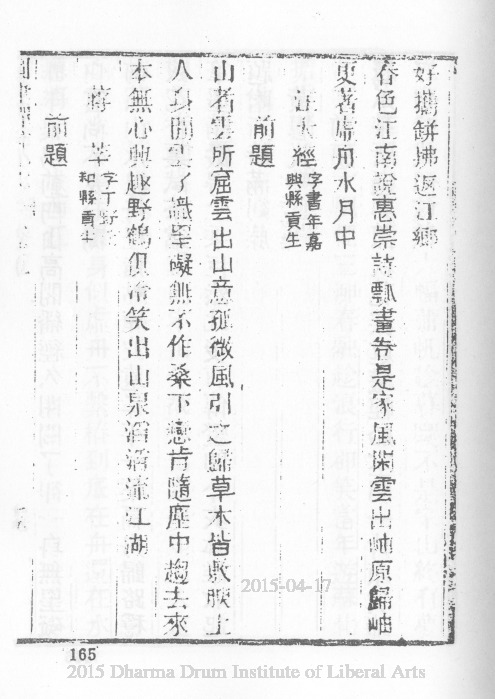 好攜鉼拂返江鄉
春色江南說惠崇詩瓢畫卷是家風閑雲出岫原歸岫
更著虛舟水月中
大經 字書年嘉興縣貢生
前題
山者雲所窟雲出山意孤微風引之歸草木皆敷腴上
人身閒雲了識罣礙無不作桑下戀肯隨塵中趨去來
本無心與趣野鶴俱冷笑出山泉滔滔流江湖
蔣莘 字于野和縣貢生
前題
2015-04-17
165
2015 Dharma Drum Institute of Liberal Arts